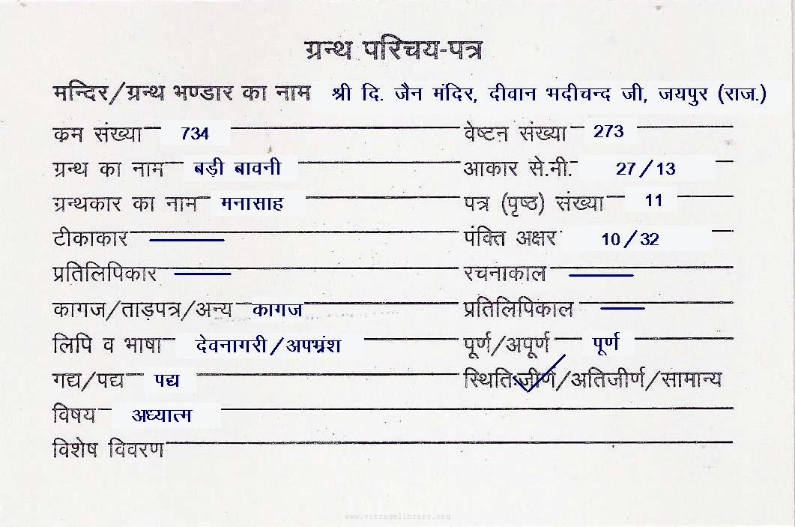 ग्रन्थ परिचय-पत्र
मन्दिर/ग्रन्थ भण्डार का नाम श्री दि. जैन मंदिर, दीवान भदीचन्द जी, जयपुर (राज.)
क्रम संख्या 734 वेष्टन संख्या 273
ग्रन्थ का नाम बड़ी बावनी आकार से.मी. 27/13
ग्रन्थकार का नाम मनासाह पत्र (पृष्ठ) संख्या 11
टीकाकार — पंक्ति अक्षर 10/32
प्रतिलिपिकार — रचनाकाल —
कागज/ताड़पत्र/अन्य कागज प्रतिलिपिकाल —
लिपि व भाषा देवनागरी/अपभ्रंश पूर्ण/अपूर्ण पूर्ण
गद्य/पद्य पद्य स्थिति जीर्ण/अतिजीर्ण/सामान्य
विषय अध्यात्म
विशेष विवरण
www.vitragelibrary.com